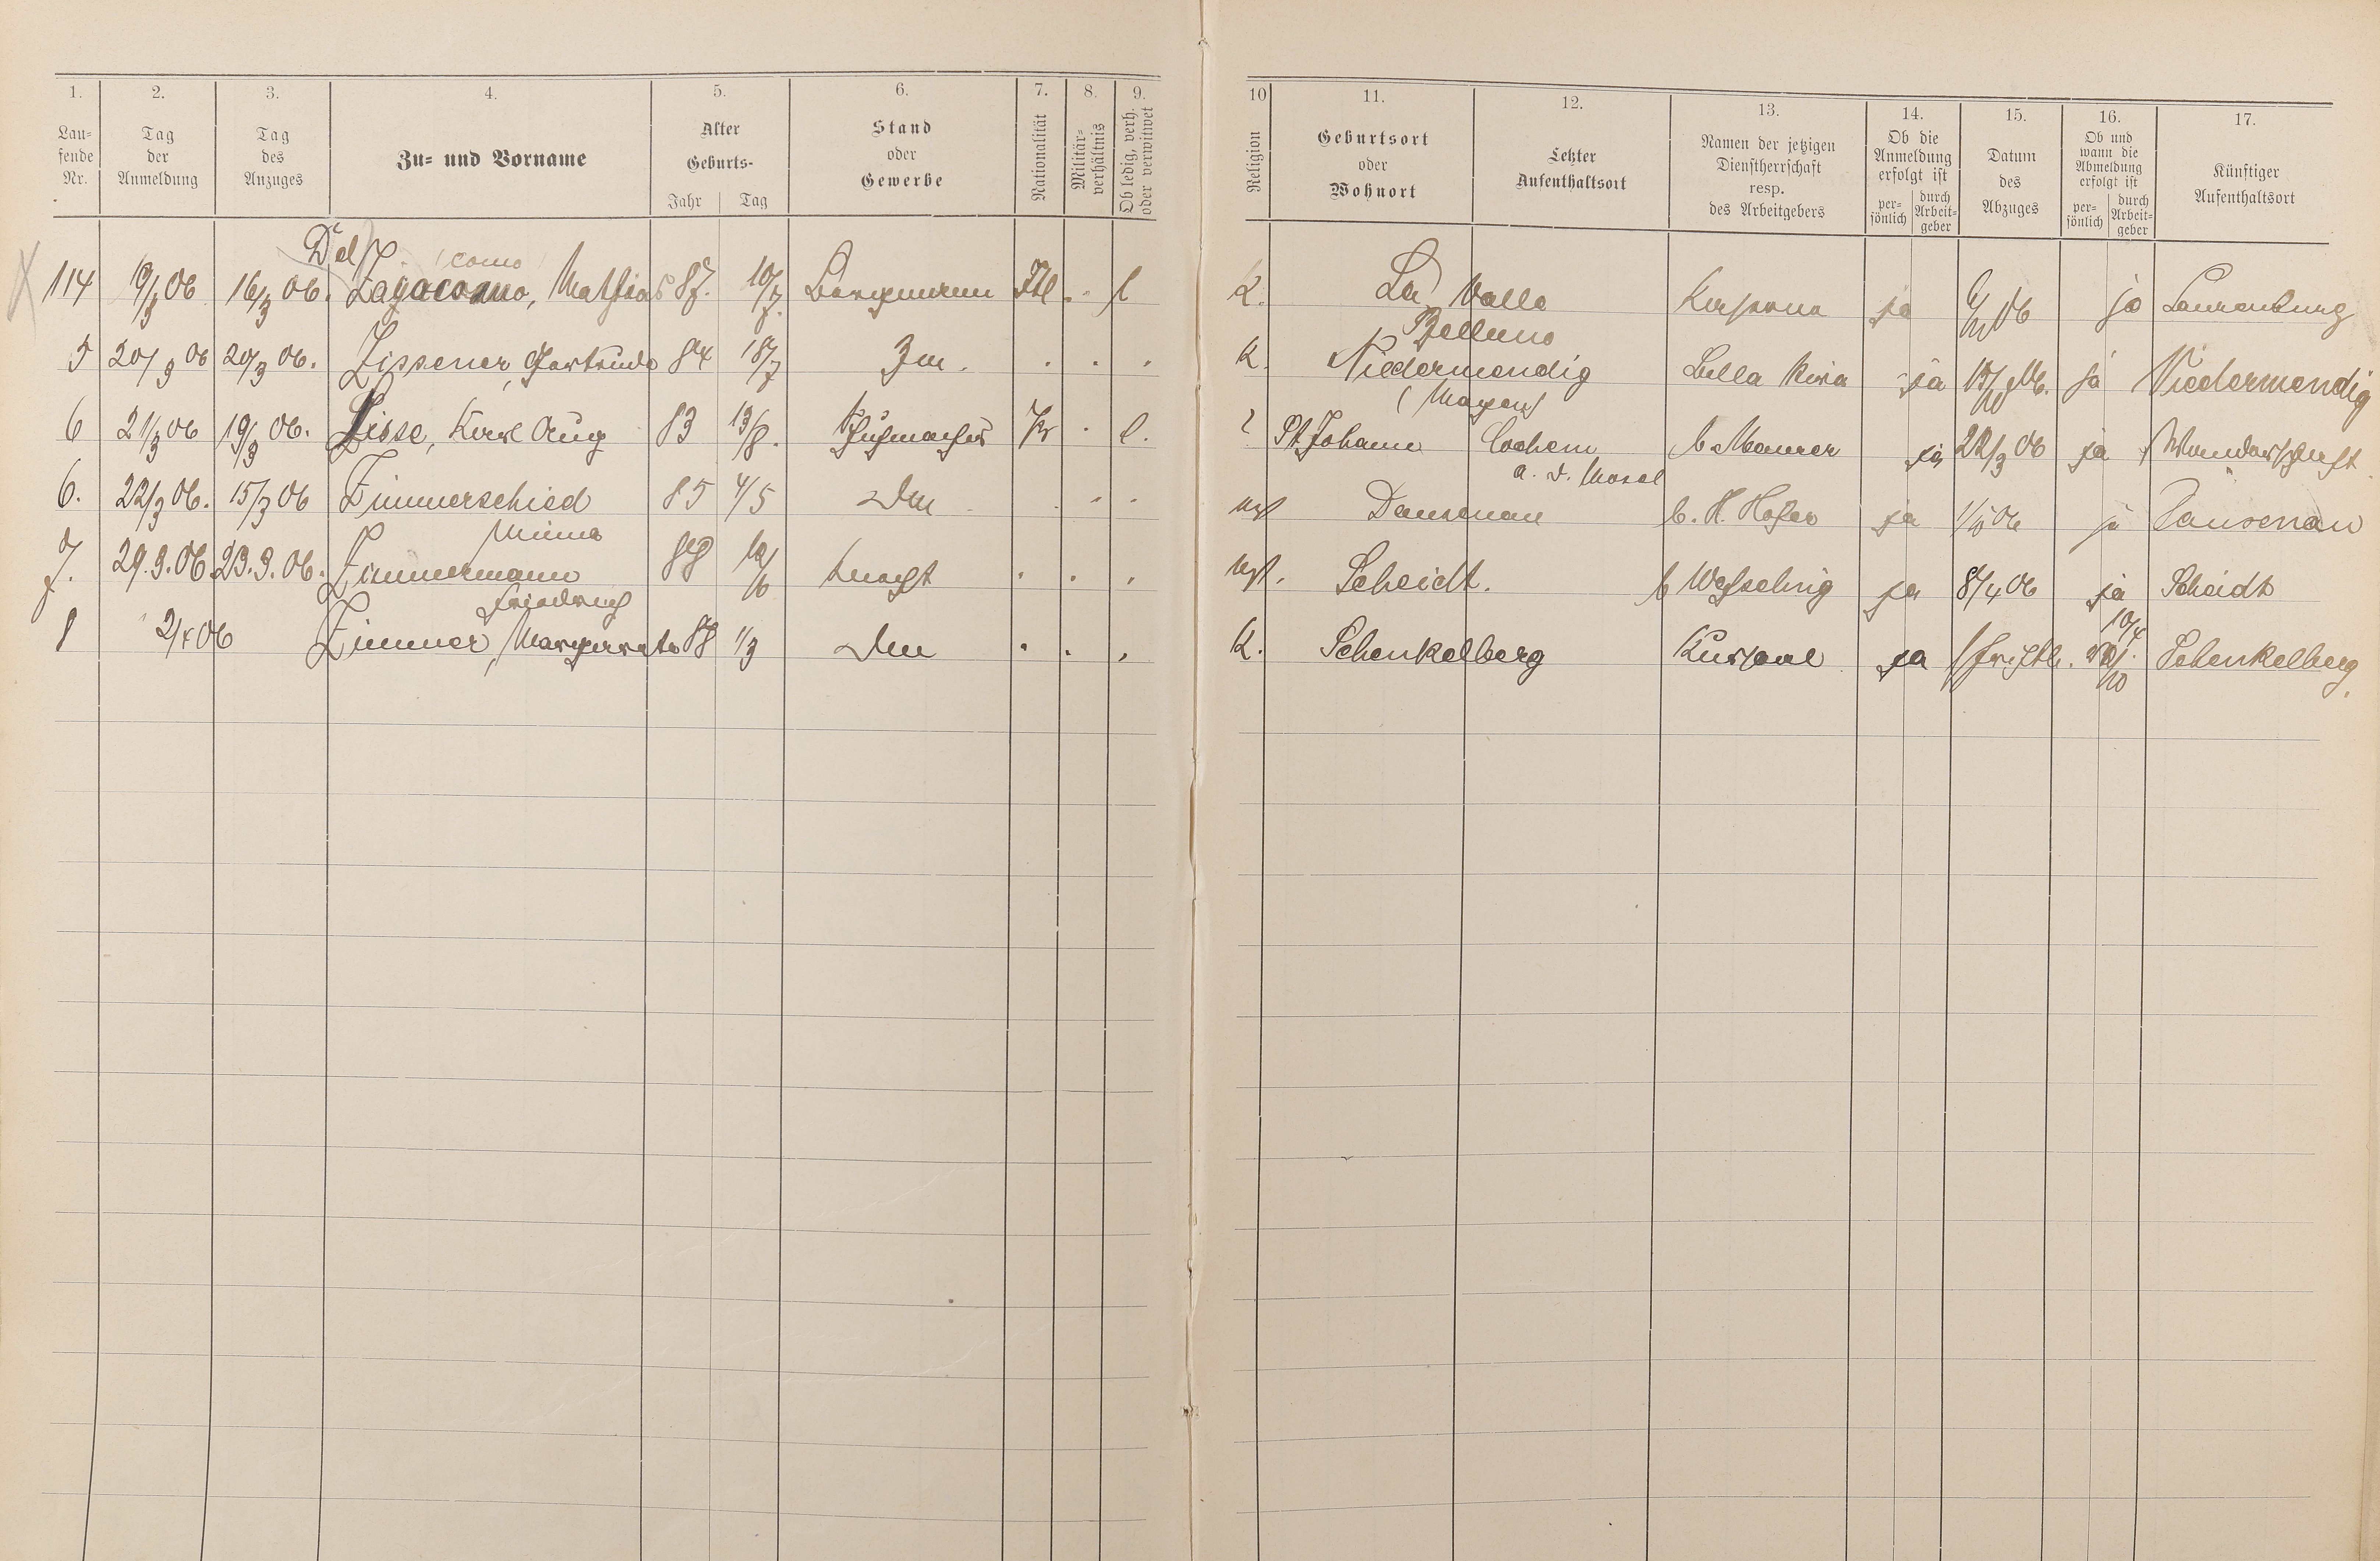 1. 2. 3. 4. 5. 6. 7. 8. 9. 10 11. 12. 13. 14. 15. 16. 17.
Lau-
fende
Nr.
Tag
der
Anmeldung
Tag
des
Anzuges
Zu- und Vorname
Alter
Geburts-
Jahr Tag
Stand
oder
Gewerbe
Nationalität
Militär-
verhältnis
Ob ledig, verh.
oder verwitwet
Religion
Geburtsort
oder
Wohnort
Letzter
Aufenthaltsort
Namen der jetzigen
Dienstherrschaft
resp.
des Arbeitgebers
Ob die
Anmeldung
erfolgt ist
per-
sönlich
durch
Arbeit-
geber
Datum
des
Abzuges
Ob und
wann die
Abmeldung
erfolgt ist
per-
sönlich
durch
Arbeit-
geber
Künftiger
Aufenthaltsort
Del
como
114 19/3 06 16/3 06. Zagacomo, Mathias 87. 10/7. Bergmann Itl . . l K. La Valle ja ja Laurenburg
Belluno
5 20/3 06 20/3 06. Zissener, Gertrude 84 18/7 . . . K. Niedermendig Bella Riva ja ja Niedermendig
(Mayen)
6 21/3 06 19/3 06. Zisse, Karl Aug 83 13/8. Schuhmacher Pr . l. St. Johann Cochem b Maurer ja 22/3 06 ja Wanderschaft
a. d. Mosel
6. 22/3 06. 15/3 06 Zimmerschied 85 4/5 Dm . . . evgl Dausenau b. H. Hofer ja ja Dausenau
Minna
7. 29.3.06. 23.3.06. Zimmermann 88 Knecht . . . evgl. Scheidt. b ja 8/4 06 ja Scheidt
Friedrich
8 2/4 06 Zimmer, Margareta 88 1/3 Dm . . . K. Schenkelberg Kursaal ja 10/4 Schenkelberg